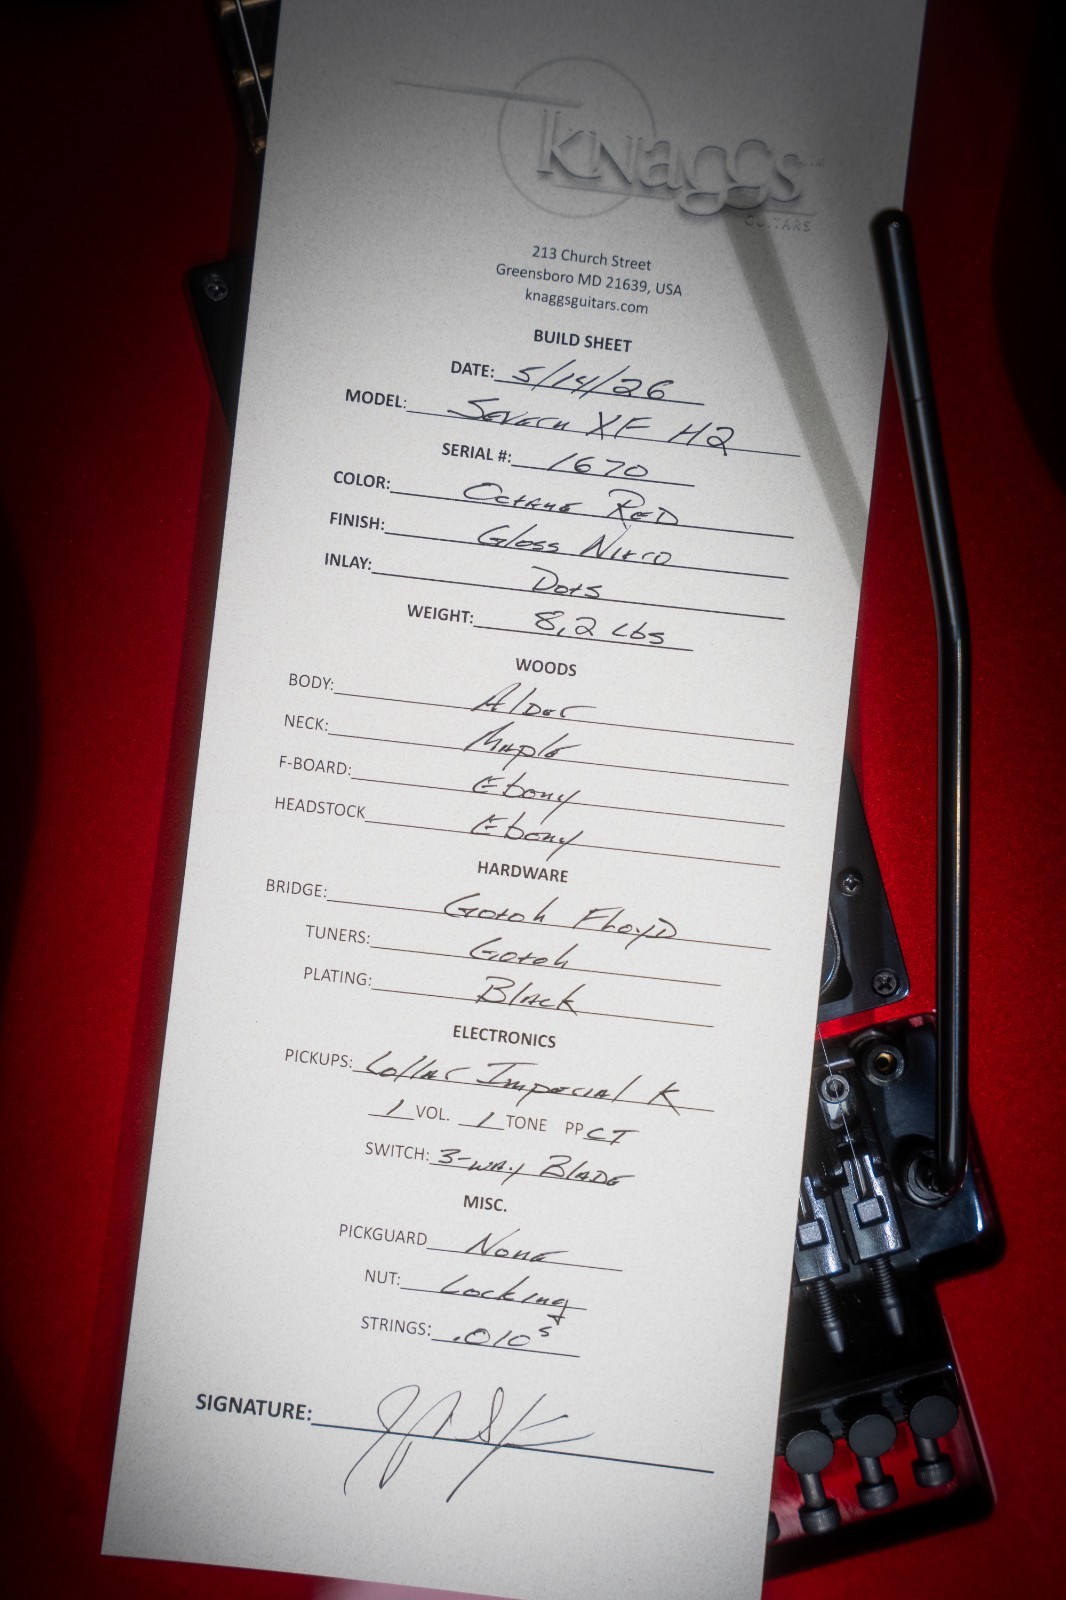 KNaGGs
GUITARS
213 Church Street
Greensboro MD 21639, USA
knaggsguitars.com
BUILD SHEET
DATE: 5/14/26
MODEL: Severn XF H2
SERIAL #: 1670
COLOR: Octane Red
FINISH: Gloss Nitro
INLAY: Dots
WEIGHT: 8,2 Lbs
WOODS
BODY: Alder
NECK: Maple
F-BOARD: Ebony
HEADSTOCK Ebony
HARDWARE
BRIDGE: Gotoh Floyd
TUNERS: Gotoh
PLATING: Black
ELECTRONICS
PICKUPS: Lollar Imperial K
1 VOL. 1 TONE PP CT
SWITCH: 3-way Blade
MISC.
PICKGUARD None
NUT: Locking
STRINGS: .010s
SIGNATURE: